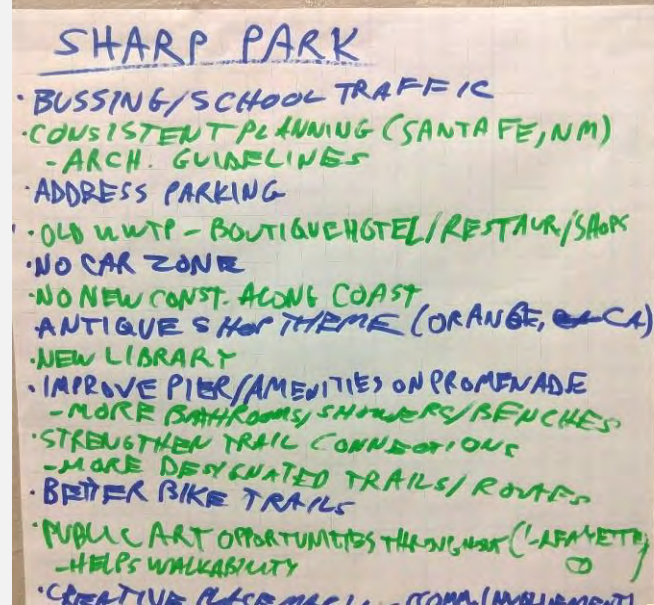 SHARP PARK
· BUSSING/SCHOOL TRAFFIC
· CONSISTENT PLANNING (SANTA FE, NM)
- ARCH. GUIDELINES
· ADDRESS PARKING
· OLD WWTP - BOUTIQUE HOTEL/RESTAUR/SHOPS
· NO CAR ZONE
· NO NEW CONST. ALONG COAST
ANTIQUE SHOP THEME (ORANGE, CA)
· NEW LIBRARY
· IMPROVE PIER/AMENITIES ON PROMENADE
- MORE BATHROOMS/SHOWERS/BENCHES
· STRENGTHEN TRAIL CONNECTIONS
- MORE DESIGNATED TRAILS/ROUTES
· BETTER BIKE TRAILS
· PUBLIC ART OPPORTUNITIES THROUGHOUT (LAFAYETTE,
- HELPS WALKABILITY
· CREATIVE